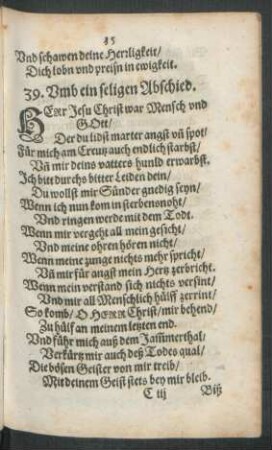 35
Vnd schawen deine Herrligkeit/
Dich lobn vnd preisn in ewigkeit.
39. Vmb ein seligen Abschied.
HErr Jesu Christ war Mensch vnd
GOtt/
Der du lidst marter angst vñ spot/
Für mich am Creutz auch endlich starbst/
Vñ mir deins vatters huld erwarbst.
Ich bitt durchs bitter Leiden dein/
Du wollst mir Sünder gnedig seyn/
Wenn ich nun kom in sterbensnoht/
Vnd ringen werde mit dem Todt.
Wenn mir vergeht all mein gesicht/
Vnd meine ohren hören nicht/
Wenn meine zunge nichts mehr spricht/
Vñ mir für angst mein Hertz zerbricht.
Wenn mein verstand sich nichts versint/
Vnd mir all Menschlich hülff zerrint/
So komb/ O HERR Christ/ mir behend/
Zu hülff an meinem letzten end.
Vnd führ mich auß dem Jam̃erthal/
Verkürtz mir auch deß Todes qual/
Die bösen Geister von mir treib/
Mit deinem Geist stets bey mir bleib.
C iij Biß